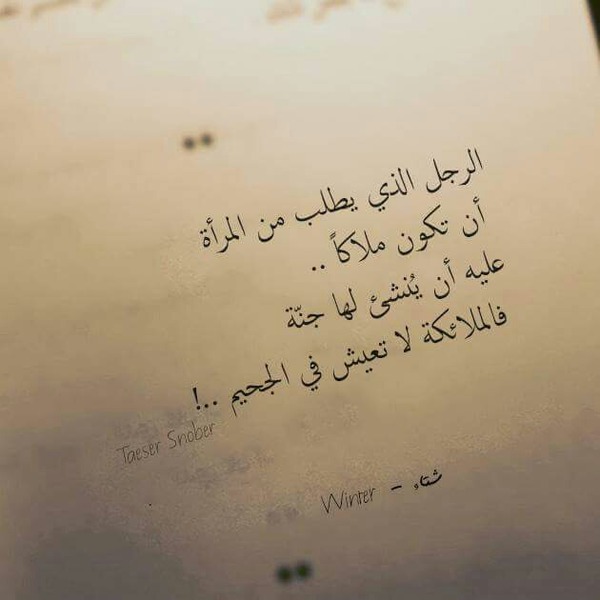 الرجل الذي يطلب من المرأة
أن تكون ملاكاً ..
عليه أن يُنشئ لها جنّة
فالملائكة لا تعيش في الجحيم ..!
Taeser Snober
شتاء - Winter